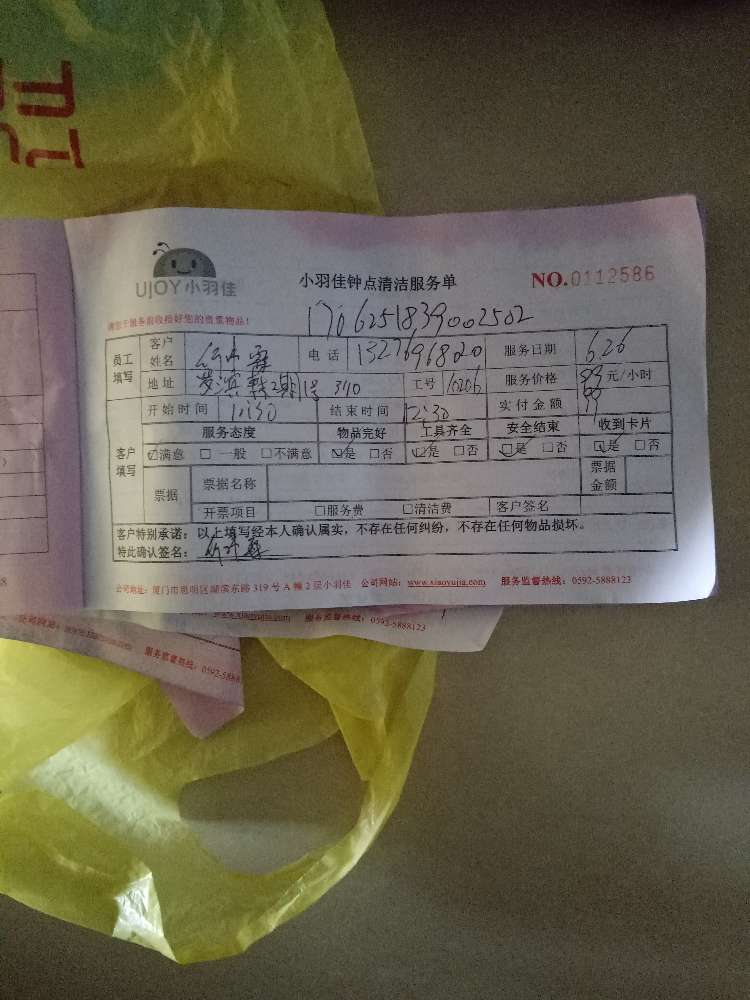 UJOY小羽佳
小羽佳钟点清洁服务单
NO.0112586
1706251839002502
员工填写
客户姓名
电话 13276968020
服务日期 6.26
地址 2期1号 340
工号 16206
服务价格 元/小时
开始时间
结束时间 12:30
实付金额
客户填写
服务态度 物品完好 工具齐全 安全结束 收到卡片
☑满意 □一般 □不满意 ☑是 □否 ☑是 □否 ☑是 □否 ☑是 □否
票据
票据名称
票据金额
开票项目 □服务费 □清洁费 客户签名
客户特别承诺：以上填写经本人确认属实，不存在任何纠纷，不存在任何物品损坏。
特此确认签名：
公司地址：厦门市思明区湖滨东路319号A幢2层小羽佳 公司网站：www.xiaoyujia.com 服务监督热线：0592-5888123
服务监督热线：0592-5888123
服务监督热线：0592-5888